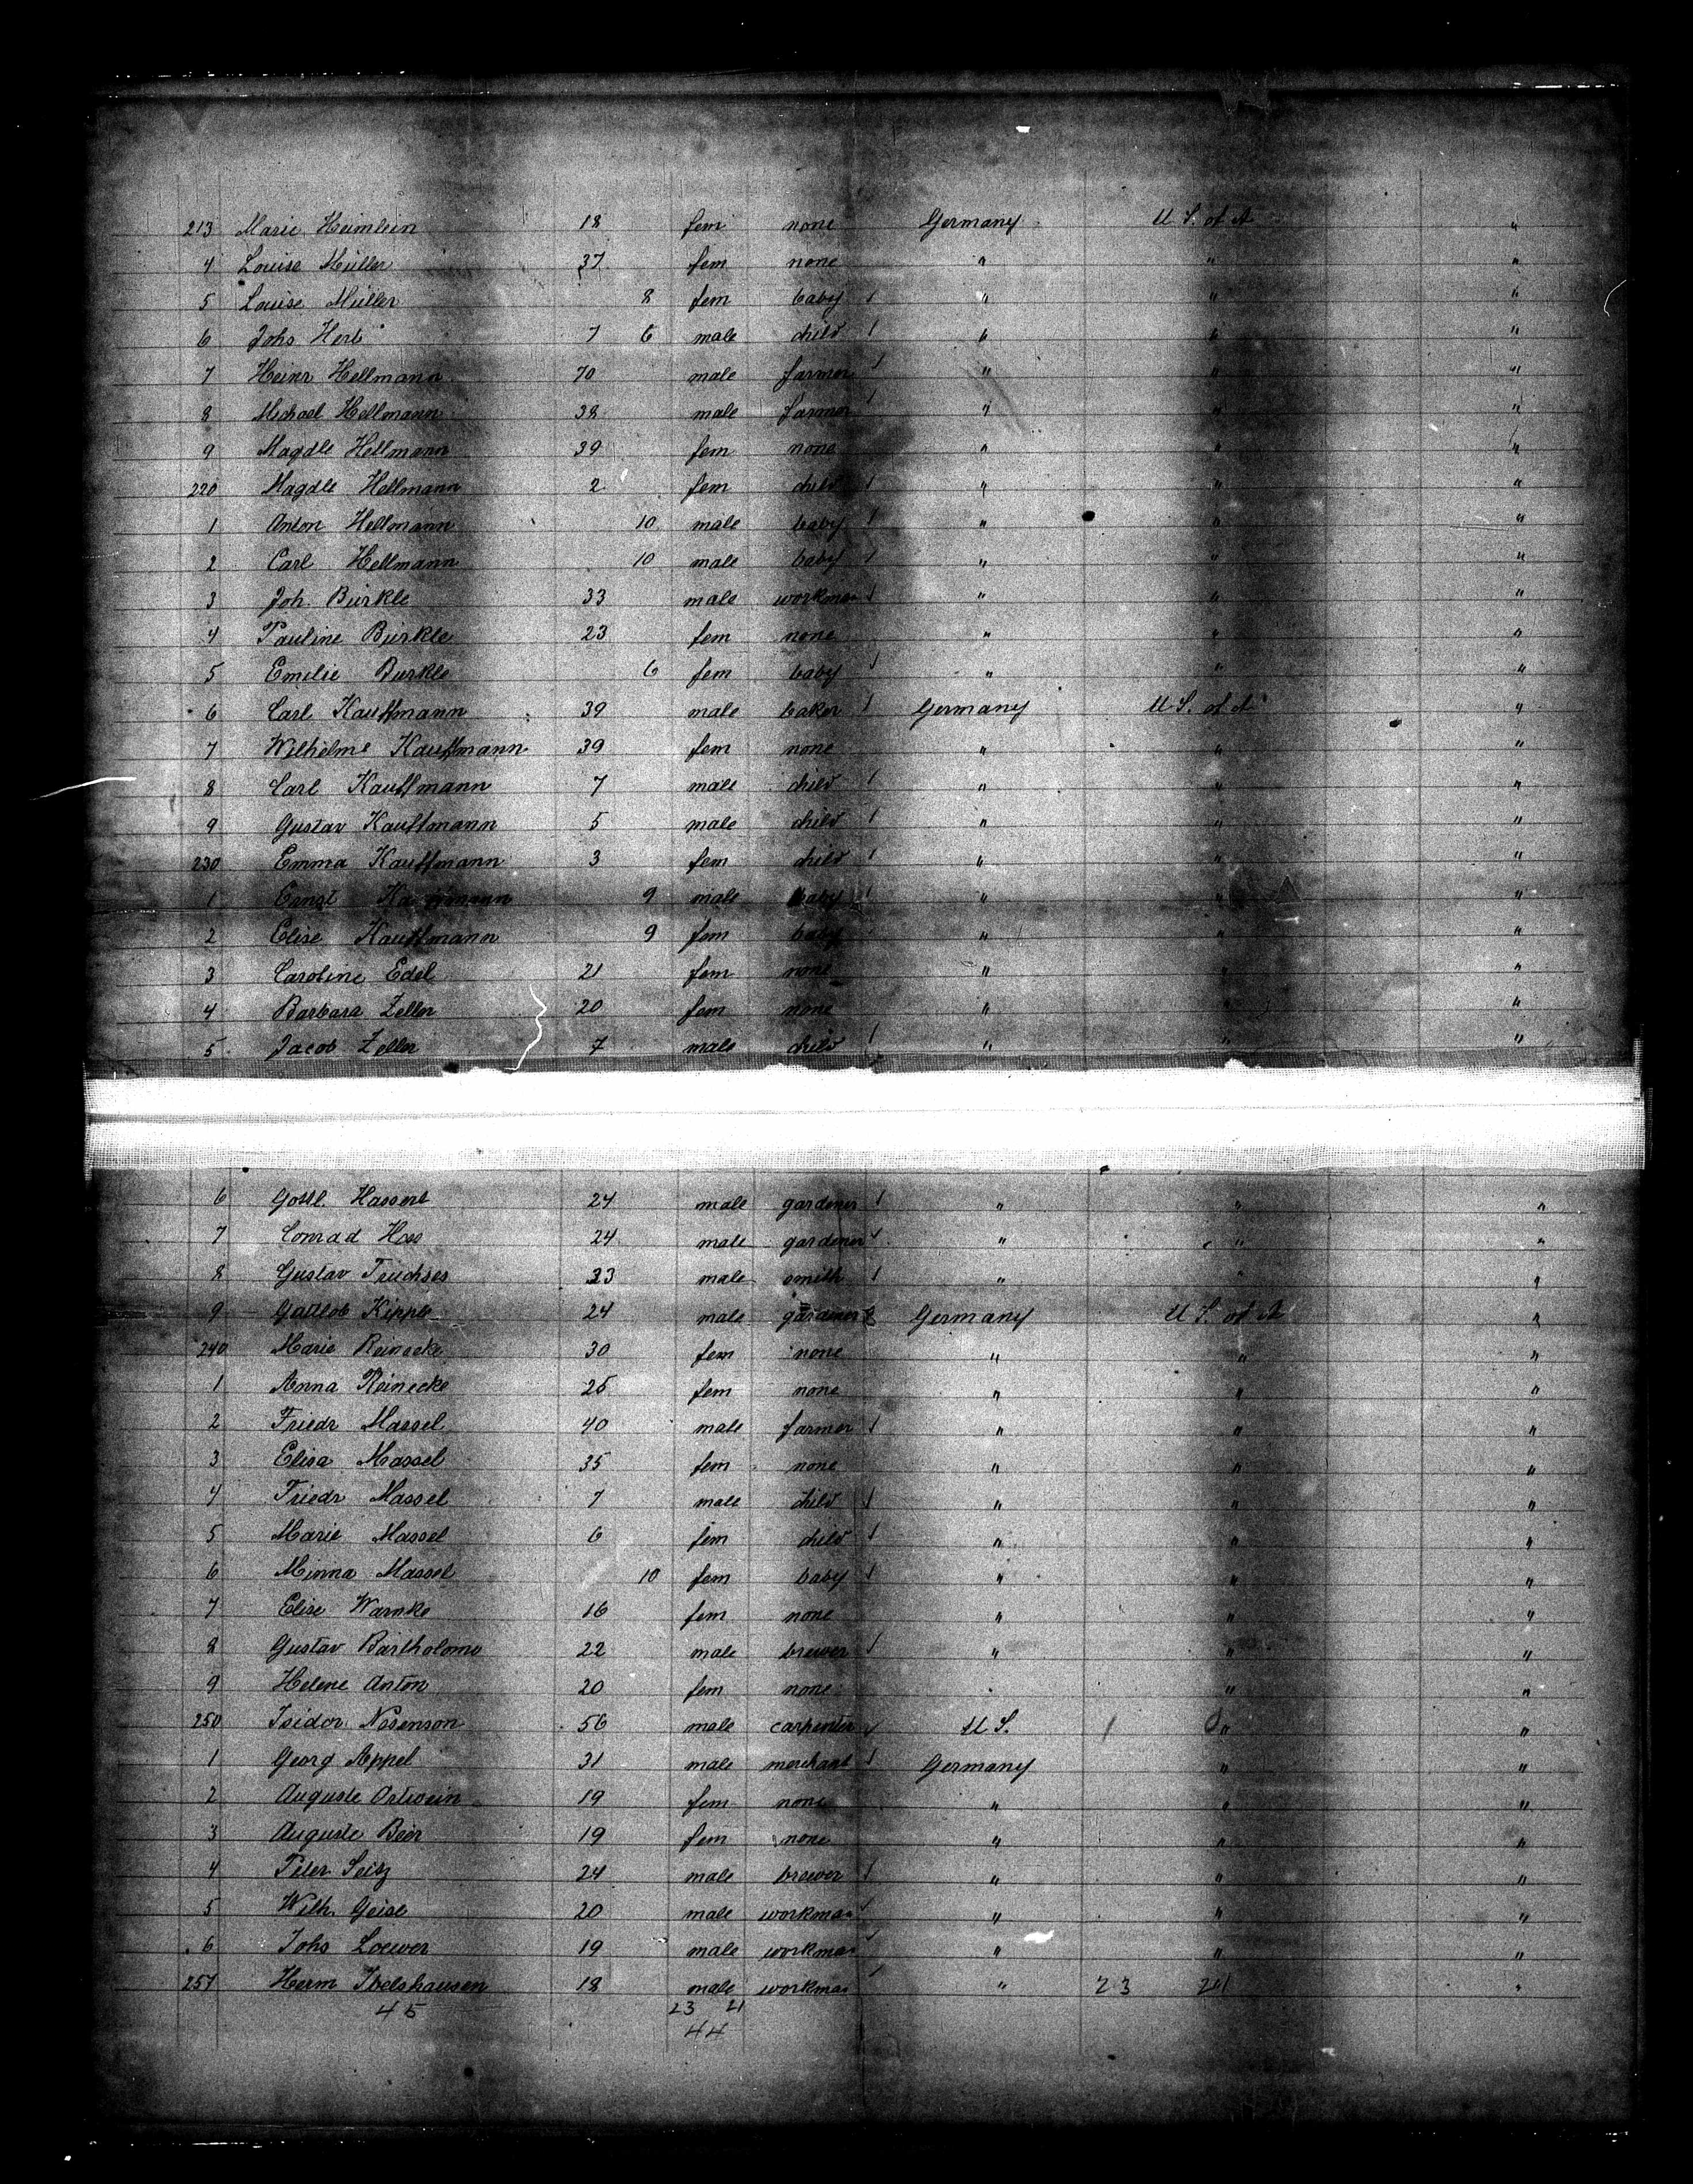 213 Marie Heimlein 18 fem none Germany U S. of A "
4 Louise Müller 37 fem none " " "
5 Louise Müller 8 fem baby / " " "
6 Johs Herb 7 6 male child / " " "
7 Heinr Hellmann 70 male farmer / " " "
8 Michael Hellmann 38 male farmer / " " "
9 Magdle Hellmann 39 fem none " " "
220 Magdle Hellmann 2 fem child / " " "
1 Anton Hellmann 10 male baby / " " "
2 Carl Hellmann 10 male baby / " " "
3 Joh. Bürkle 33 male workman / " " "
4 Pauline Bürkle 23 fem none " " "
5 Emilie Burkle 6 fem baby / " " "
6 Carl Kauffmann 39 male baker / Germany U S. of A "
7 Wilhelme Kauffmann 39 fem none " " "
8 Carl Kauffmann 7 male child / " " "
9 Gustav Kauffmann 5 male child / " " "
230 Emma Kauffmann 3 fem child / " " "
1 Ernst 9 male baby / " " "
2 Elise Kauffmann 9 fem baby " " "
3 Caroline Edel 21 fem none " " "
4 Barbara Zeller 20 fem none " " "
5 Jacob Zeller 7 male child / " " "
6 Gottl. 24 male gardener / " " "
7 Conrad Hess 24 male gardener / " " "
8 Gustav Truchses 23 male smith / " " "
9 Gottlob Kipple 24 male gardener Germany U S. of A "
240 Marie Reinecke 30 fem none " " "
1 Anna Reinecke 25 fem none " " "
2 Friedr Massel 40 male farmer / " " "
3 Elisa Massel 35 fem none " " "
4 Friedr Massel 7 male child / " " "
5 Marie Massel 6 fem child / " " "
6 Minna Massel 10 fem baby / " " "
7 Elise Warnke 16 fem none " " "
8 Gustav Bartholomo 22 male brewer / " " "
9 Helene Anton 20 fem none " "
250 Isidor Nosenson 56 male carpenter / U S. / " "
1 Georg Appel 31 male merchant / Germany " "
2 Auguste Ortwein 19 fem none " " "
3 Auguste Beer 19 fem none " " "
4 Peter Seitz 24 male brewer / " " "
5 Wilh. Geise 20 male workman / " " "
6 Johs Loewer 19 male workman / " " "
257 Herm Ibelshausen 18 male workman / " 23 21 "
45 23 21
44